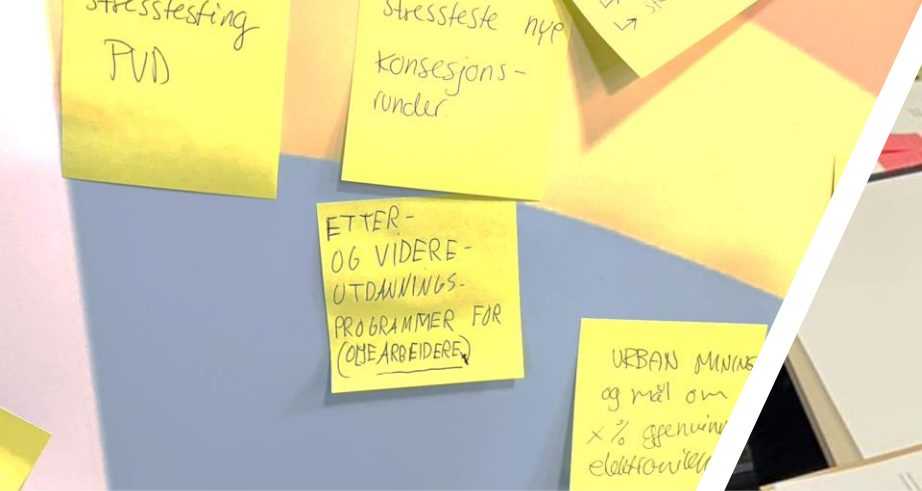 stresstesting
PUD
stressteste nye
konsesjons-
runder.
ETTER-
OG VIDERE-
UTDANNINGS-
PROGRAMMER FOR
(OLJEARBEIDERE)
URBAN MINING
og mål om
x % gjenvinn
elektronikk